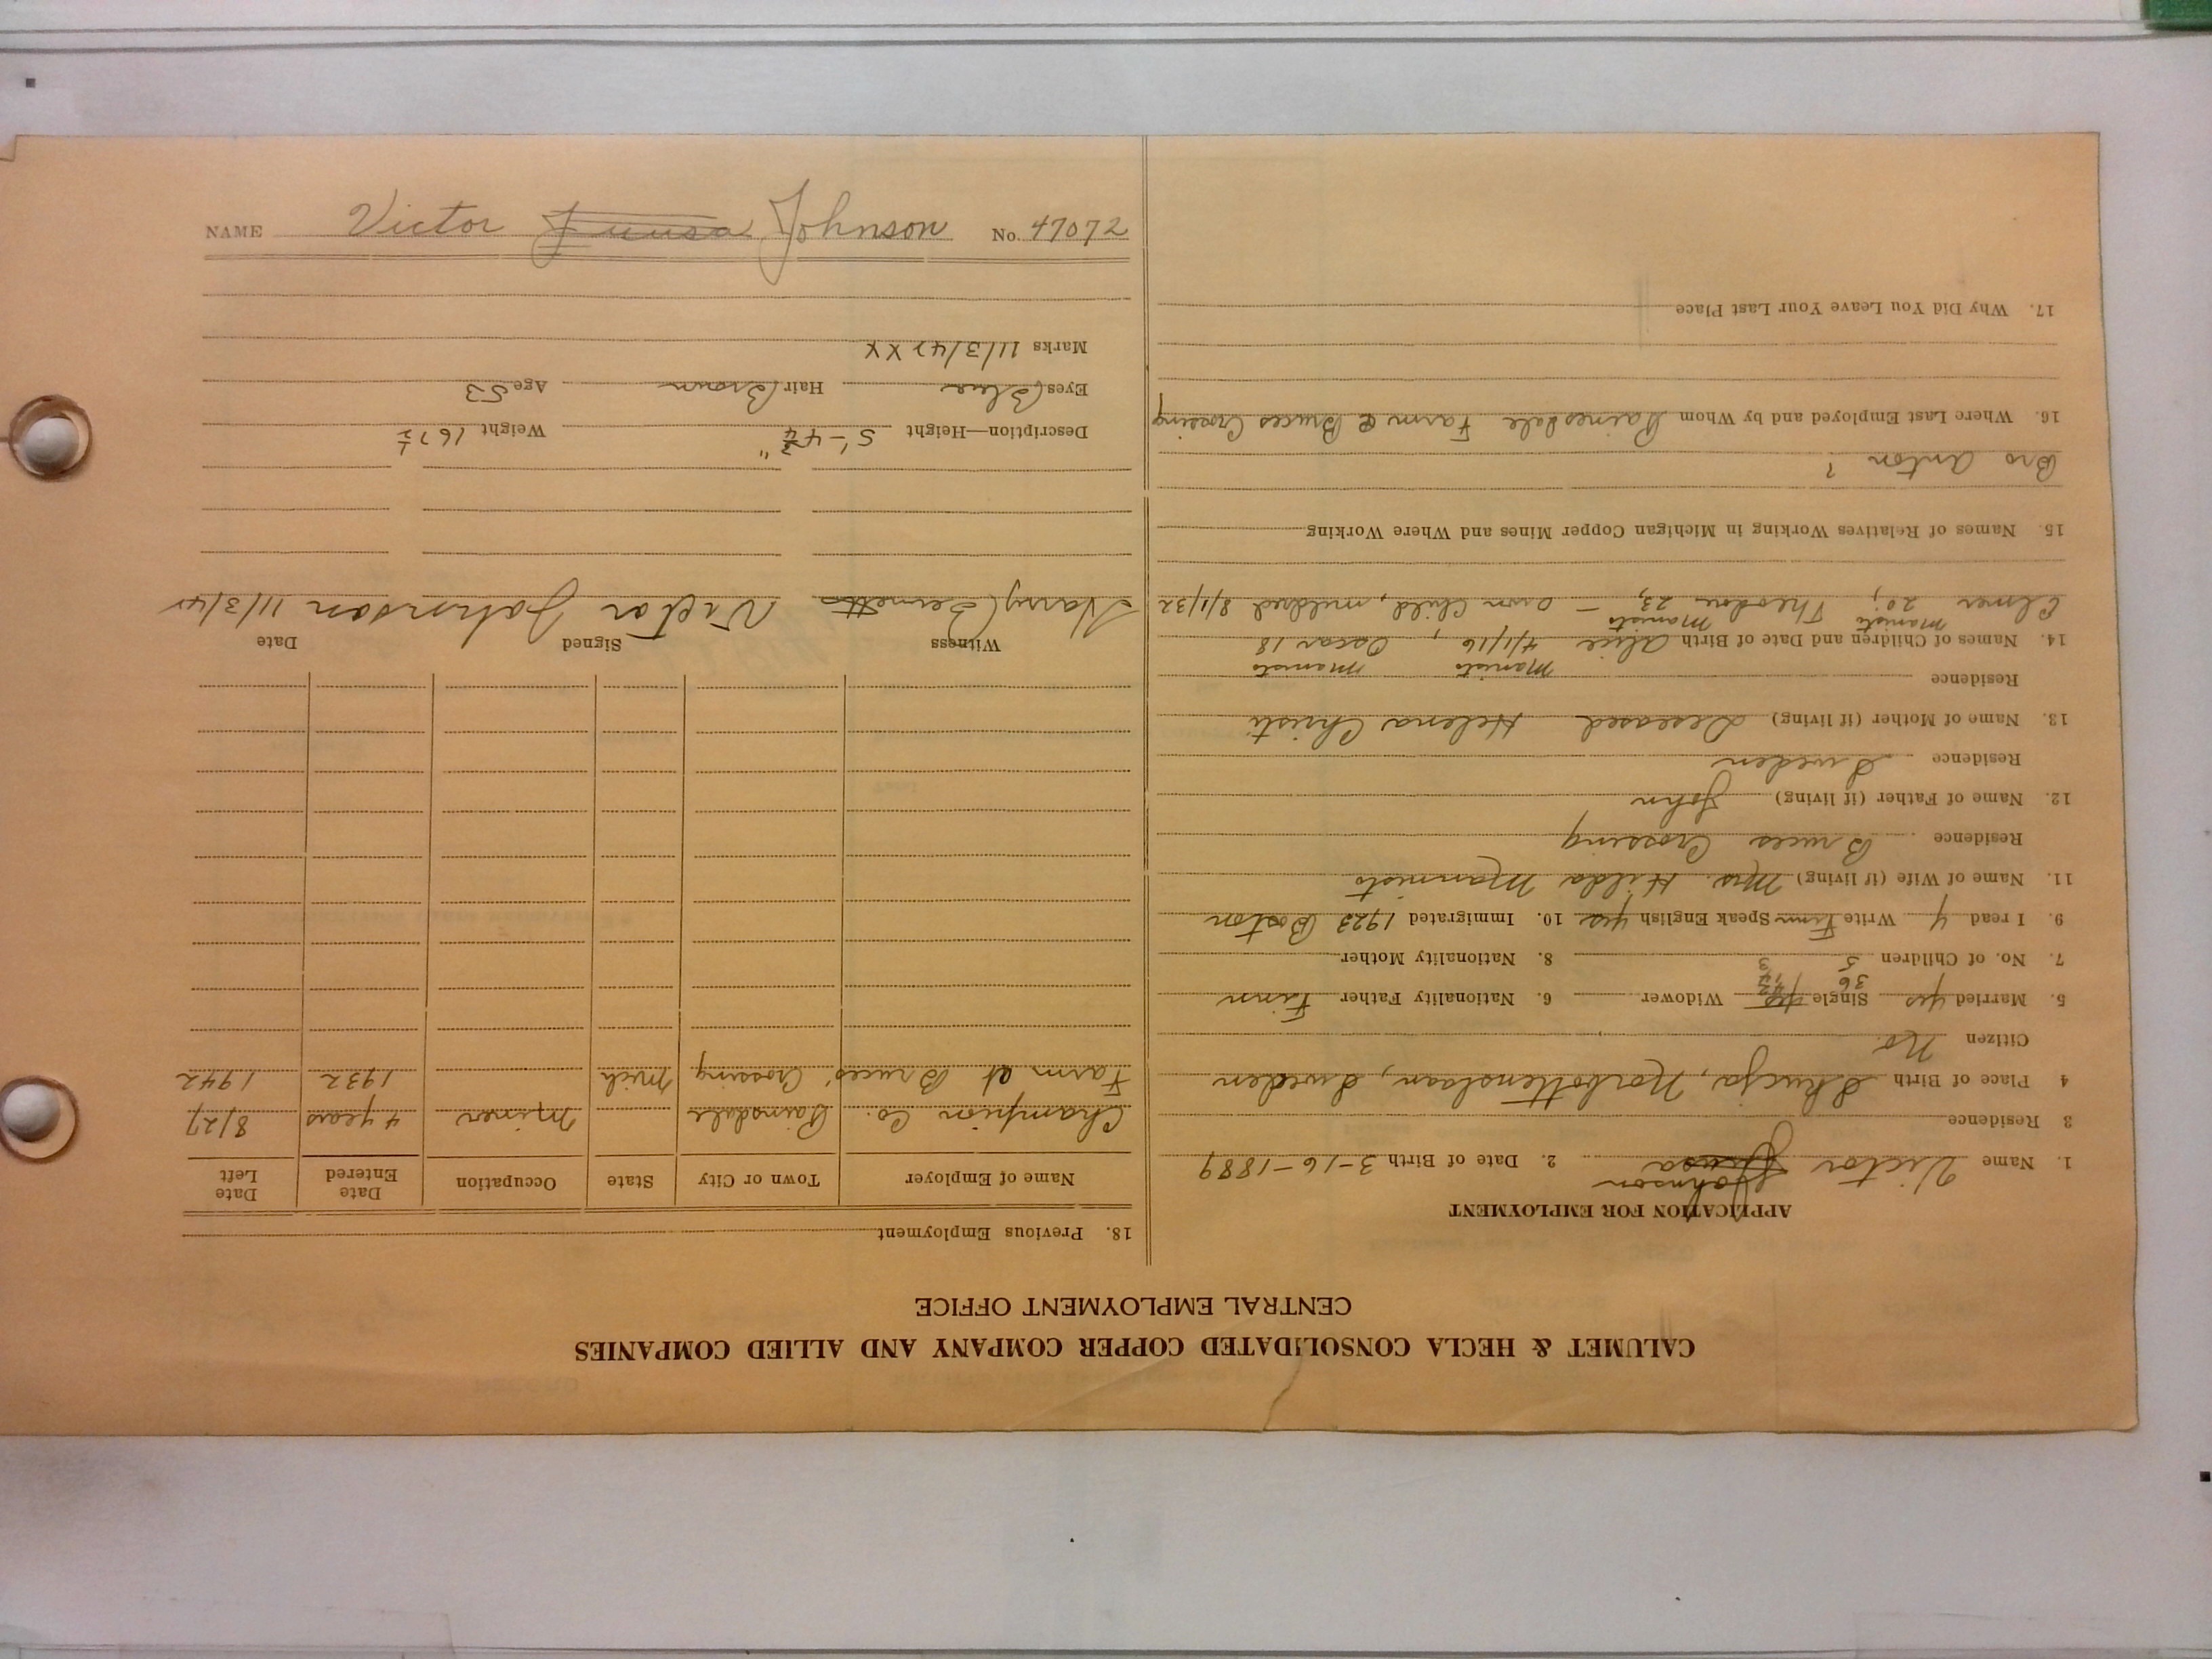 CALUMET & HECLA CONSOLIDATED COPPER COMPANY AND ALLIED COMPANIES
CENTRAL EMPLOYMENT OFFICE
APPLICATION FOR EMPLOYMENT
Johnson
1. Name Victor 2. Date of Birth 3-16-1889
3 Residence
4 Place of Birth Norbottenslaan, Sweden
Citizen No.
5. Married yes Single Widower 6. Nationality Father Finn
36
7. No. of Children 5 3 8. Nationality Mother
9. I read y Write Finn Speak English yes 10. Immigrated 1923 Boston
11. Name of Wife (if living) Mrs. Hilda Mannisto
Residence Bruces Crossing
12. Name of Father (if living) John
Residence Sweden
13. Name of Mother (if living) Deceased Helena Christi
Residence
Manisto Manisto
14. Names of Children and Date of Birth Alice 4/1/16, Oscar 18
Manisto Manisto
Elmer 20, Theodore 23, - own Child, mildred 8/1/32
15. Names of Relatives Working in Michigan Copper Mines and Where Working
Bro Anton ?
16. Where Last Employed and by Whom Painesdale Farm @ Bruces Crossing
17. Why Did You Leave Your Last Place
18. Previous Employment
Name of Employer Town or City State Occupation Date Entered Date Left
Champion Co. Painsdale Miner 4 years 8/27
Farm at Bruces' Crossing Mich 1932 1942
Witness Signed Date
Harry Victor Johnson 11/3/42
Description—Height 5'-4¾" Weight 167½
Eyes Blue Hair Brown Age 53
Marks 11/3/42 XX
NAME Victor Juusa Johnson No. 47072